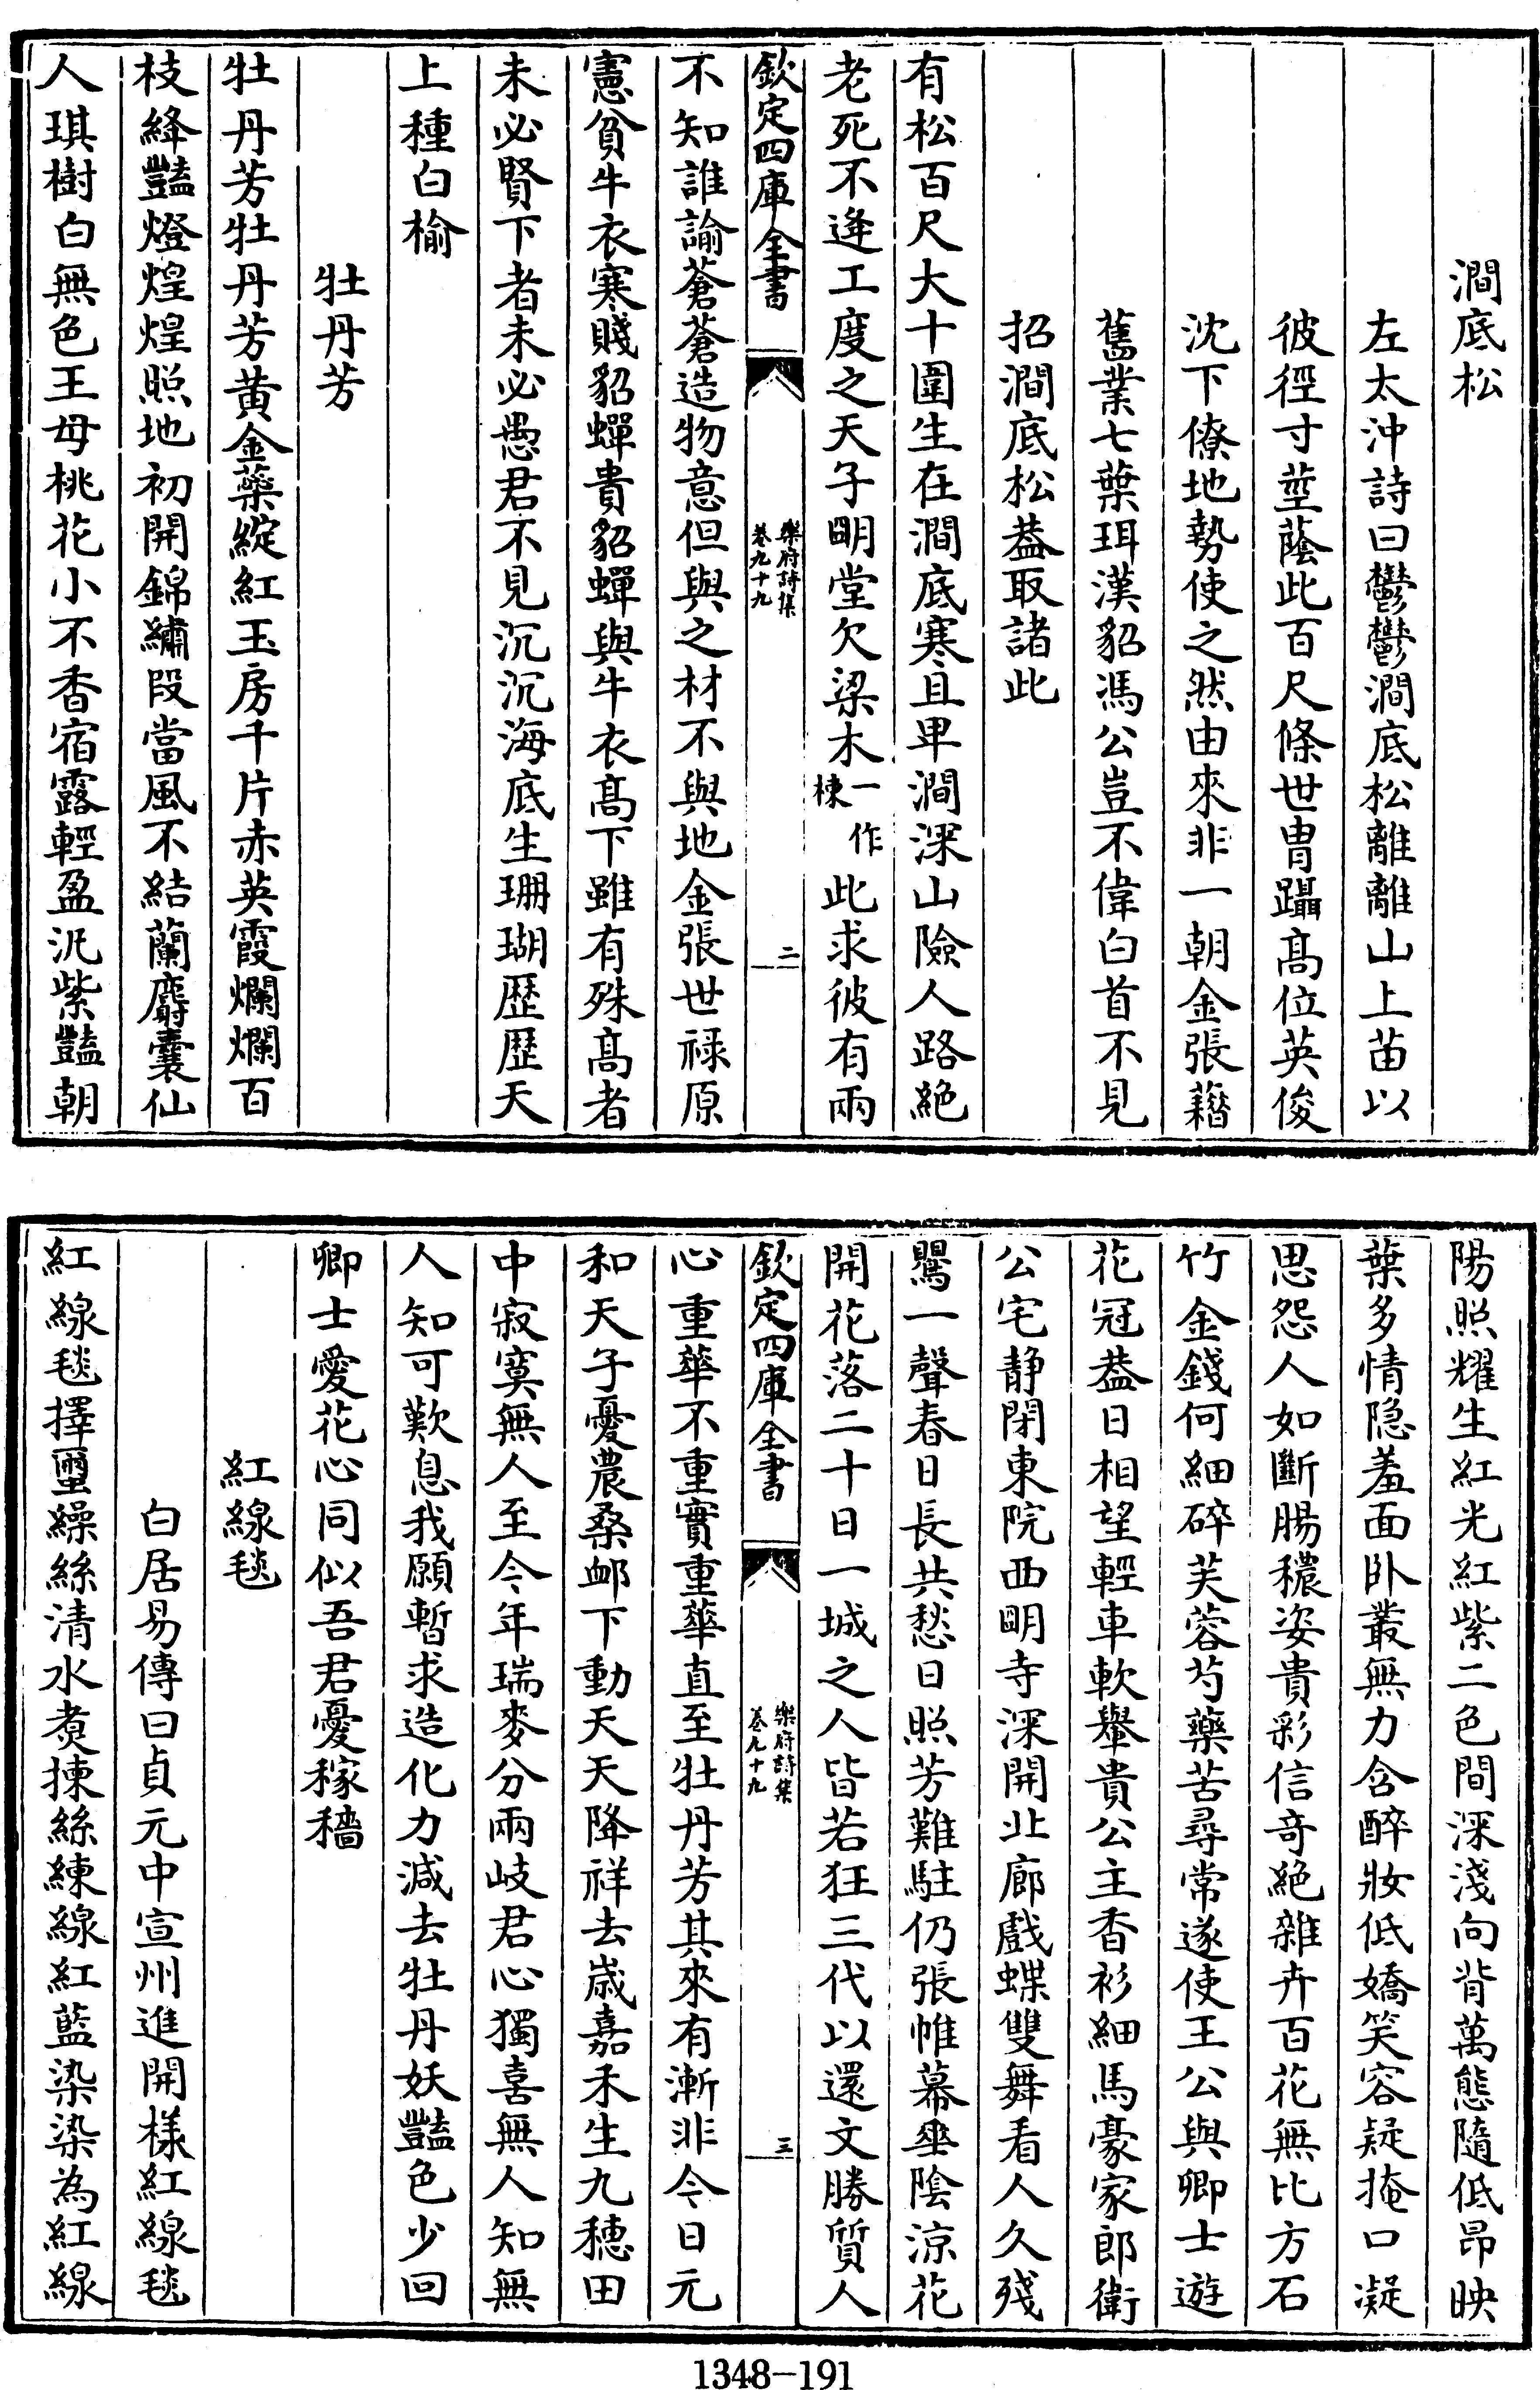 澗底松
左太沖詩曰鬱鬱澗底松離離山上苗以
彼徑寸莖蔭此百尺條世胄躡髙位英俊
沈下僚地勢使之然由來非一朝金張藉
舊業七葉珥漢貂馮公豈不偉白首不見
招澗底松葢取諸此
有松百尺大十圍生在澗底寒且卑澗深山險人路絶
老死不逢工度之天子明堂欠梁木一作棟此求彼有兩
欽定四庫全書
樂府詩集
卷九十九
二
不知誰諭蒼蒼造物意但與之材不與地金張世禄原
憲貧牛衣寒賤貂蟬貴貂蟬與牛衣髙下雖有殊髙者
未必賢下者未必愚君不見沉沉海底生珊瑚歴歴天
上種白榆
牡丹芳
牡丹芳牡丹芳黄金蘂綻紅玉房千片赤英霞爛爛百
枝絳豔燈煌煌照地初開錦繡段當風不結蘭麝囊仙
人琪樹白無色王母桃花小不香宿露輕盈汎紫豔朝
陽照耀生紅光紅紫二色間深淺向背萬態隨低昂映
葉多情隐羞面卧叢無力含醉妝低嬌笑容疑掩口凝
思怨人如斷腸穠姿貴彩信奇絶雜卉百花無比方石
竹金錢何細碎芙蓉芍藥苦尋常遂使王公與卿士遊
花冠葢日相望輕車軟轝貴公主香衫細馬豪家郎衛
公宅静閉東院西明寺深開北廊戲蝶雙舞看人久殘
鸎一聲春日長共愁日照芳難駐仍張帷幕垂陰涼花
開花落二十日一城之人皆若狂三代以還文勝質人
欽定四庫全書
樂府詩集
卷九十九
三
心重華不重實重華直至牡丹芳其來有漸非今日元
和天子憂農桑䘏下動天天降祥去歳嘉禾生九穗田
中寂寞無人至今年瑞麥分兩岐君心獨喜無人知無
人知可歎息我願暫求造化力減去牡丹妖豔色少回
卿士愛花心同似吾君憂稼穡
紅線毯
白居易傳曰貞元中宣州進開樣紅線毯
紅線毯擇璽繰絲清水煑揀絲練線紅藍染染為紅線
1348-191